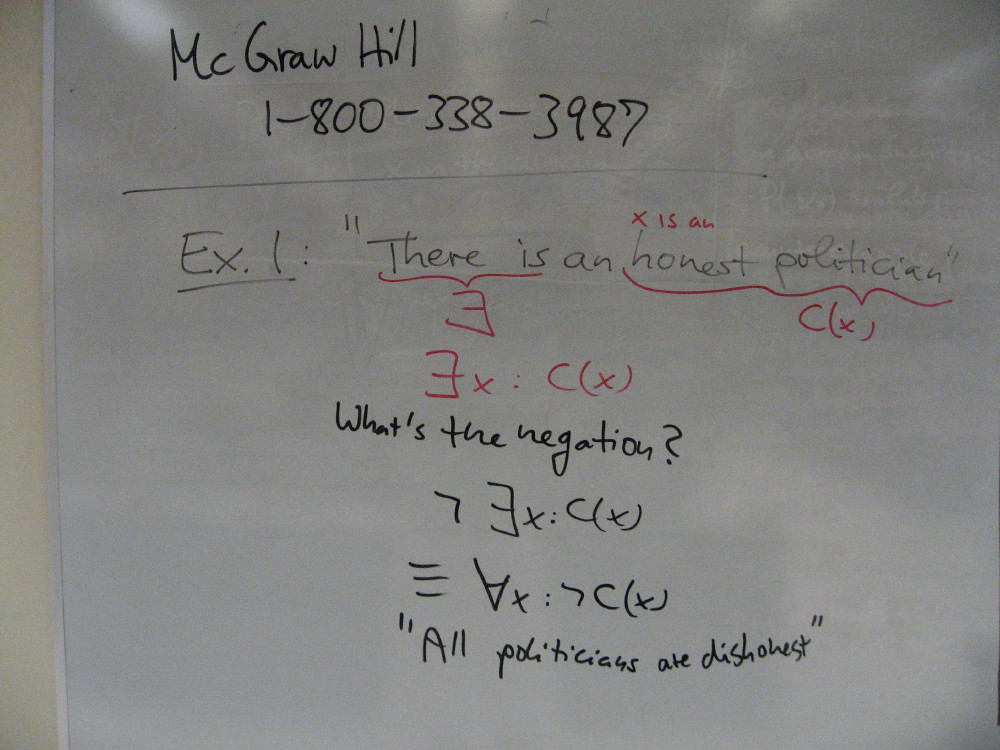 McGraw Hill
1-800-338-3987
x is an
Ex. 1: "There is an honest politician"
∃
C(x)
∃x: C(x)
What's the negation?
¬ ∃x: C(x)
≡ ∀x: ¬C(x)
"All politicians are dishonest"